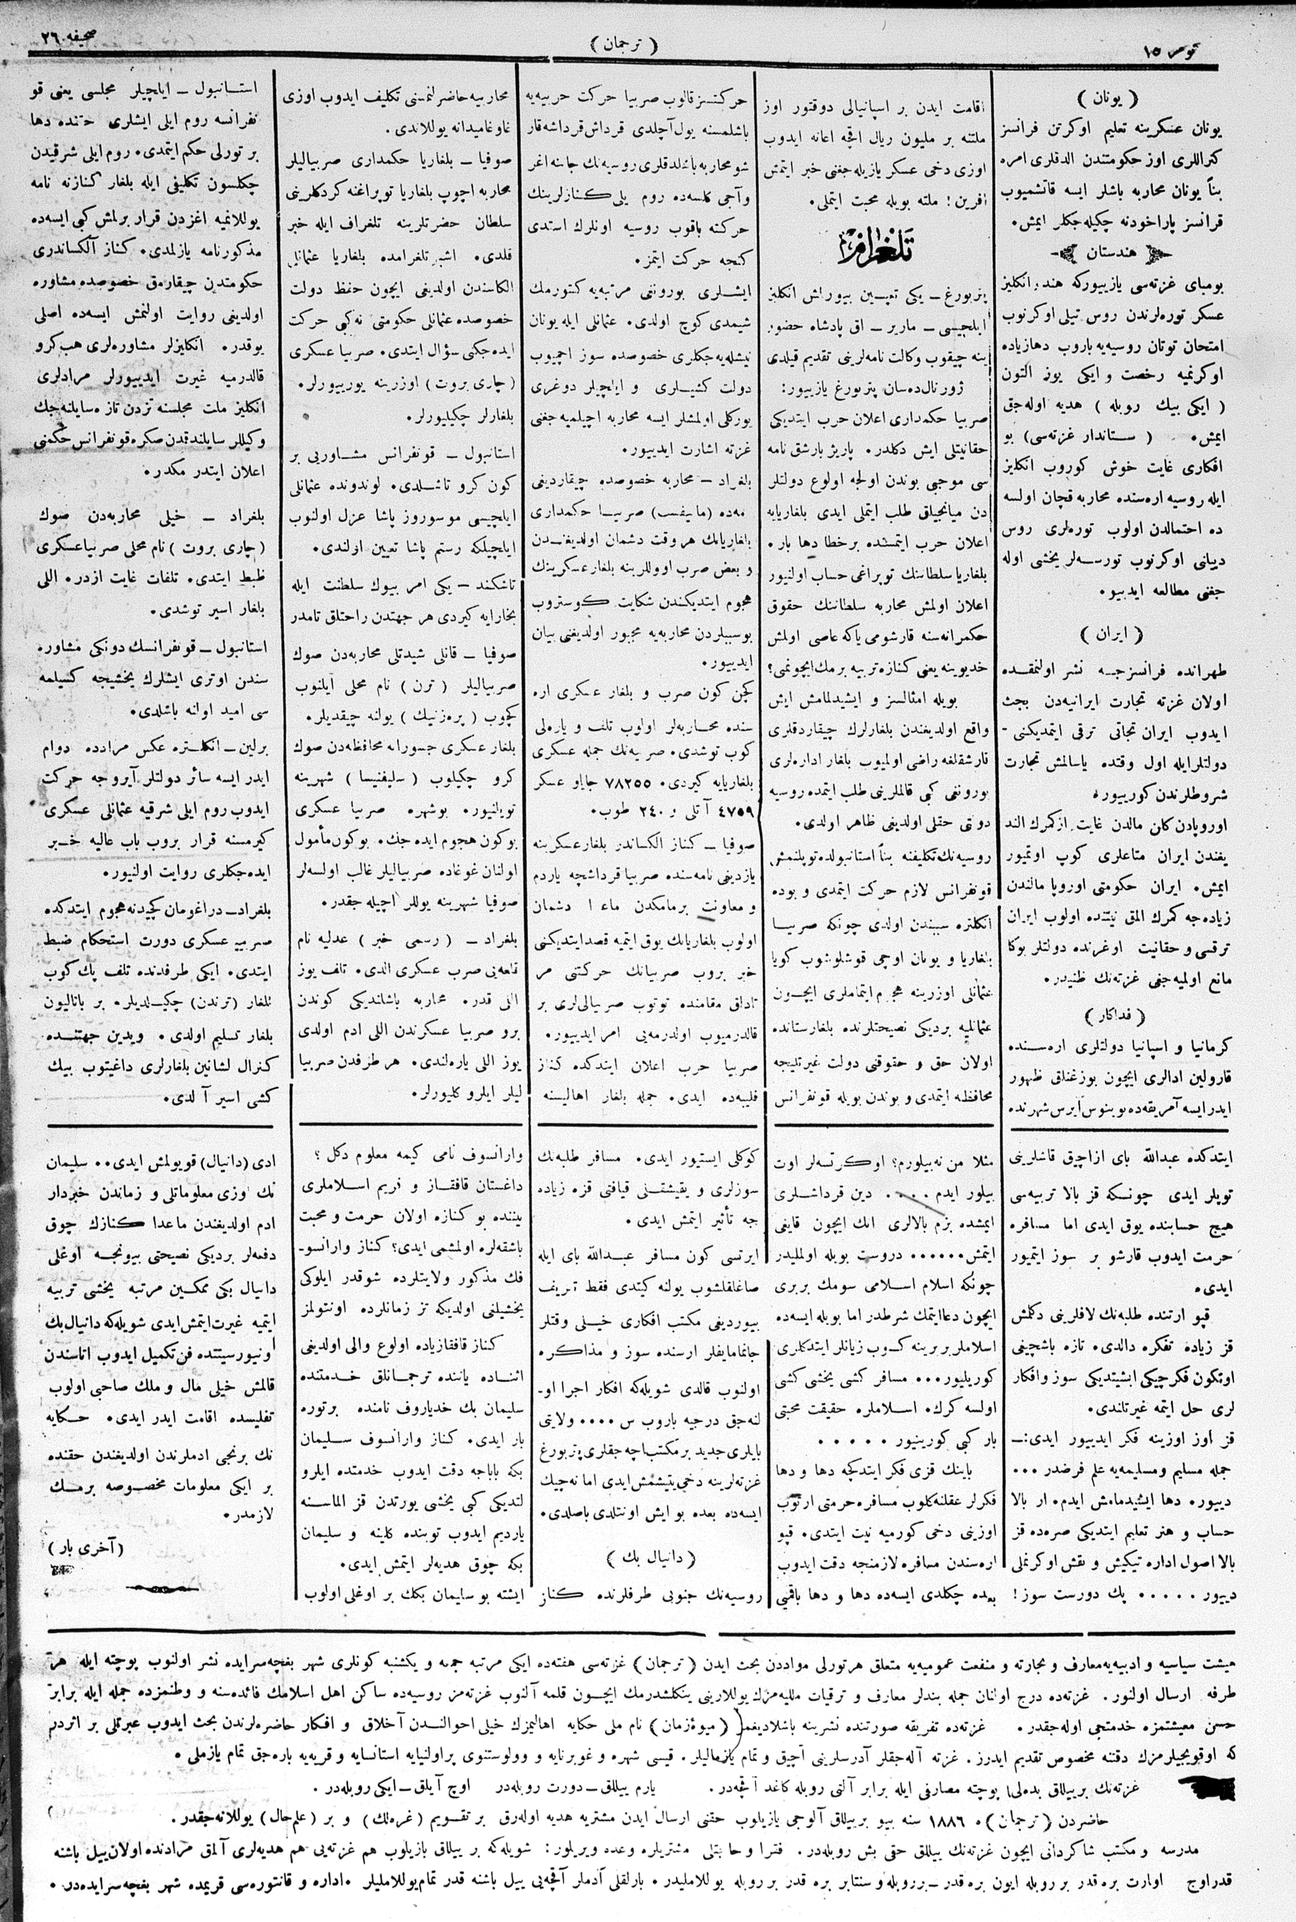 نومر ١٥
( ترجمان )
صحیفه ٢٦٠
( یونان )
یونان عسکرینه تعلیم اوکرتن فرانسز
کنراللری اوز حکومتندن الدقلری امره
بناً یونان محاربه باشلر ایسه قاتشمیوب
فرانسز پاراخودنه چکیله جکلر ایمش.
هندستان
بومبای غزته‌سی یازییورکه هندد انکلیز
عسکر توره‌لرندن روس تیلی اوکرنوب
امتحان توتان روسیه‌یه باروب دها زیاده
اوکرنمیه رخصت و ایکی یوز التون
( ایکی بیك روبله ) هدیه اوله جق
ایمش. ( ستاندار غزته‌سی ) بو
افکاری غایت خوش کوروب انکلیز
ایله روسیه اره‌سنده محاربه قچان اولسه
ده احتمالدن اولوب توره‌لری روس
دیبانی اوکرنوب تورسه‌لر یخشی اوله
جغنی مطالعه ایدییو.
( ایران )
طهرانده فرانسزجه نشر اولنمقده
اولان غزته تجارت ایرانیه‌دن بحث
ایدوب ایران تجاتی ترقی ایتمدیکنی
دولتلر ایله اول وقتده یاسالمش تجارت
شروطلرندن کورییور.
اوروپادن کان مالدن غایت از کمرك الند
یغندن ایران متاعلری کوپ اوتمیور
ایمش. ایران حکومتی اوروپا مالندن
زیاده‌جه کمرك المق نیتنده اولوب ایران
ترقسی و حقانیت اوغرنده دولتلر بوکا
مانع اولمیه جغی غزته‌نك ظنیدر.
( فداکار )
کرمانیا و اسپانیا دولتلری اره‌سنده
قارولین ادالری ایچون بوزغنلق ظهور
ایدر ایسه آمریقه‌ده بوینوس آیرس شهرنده
اقامت ایدن بر اسپانیالی دوقتور اوز
ملتنه بر ملیون ریال اقچه اعانه ایدوب
اوزی دخی عسکر یازیله جغنی خبر ایتمش
افرین! ملته بویله محبت ایتملی.
تلغرافلر
پتربورغ ــ یکی تعیین بیورلش انکلیز
ایلچیسی ــ ماریر ــ اق پادشاه حضور
ینه چیقوب وکالت نامه‌لرینی تقدیم قیلدی
ژورنال‌ده‌سان پتربورغ یازییور:
صربیا حکمداری اعلان حرب ایتدیکی
حقانیتلی ایش دکلدر. پاریژ بارشق نامه
سی موجبی بوندن اولجه اولوغ دولتلر
دن میانجیلق طلب ایتملی ایدی بلغاریایه
اعلان حرب ایتمسنده بر خطا دها بار.
بلغاریا سلطاننك توپراغی حساب اولنیور
اعلان اولمش محاربه سلطاننك حقوق
حکمرانه‌سنه قارشومی یاکه عاصی اولمش
خدیوینه یعنی کنازه تربیه برمك ایچونمی؟
بویله امثالسز و ایشیدلمامش ایش
واقع اولدیغندن بلغارلرك چیقاردقلری
قارشقلغه راضی اولمیوب بلغار اداره‌لری
بورونغی کبی قالملرینی طلب ایتمده روسیه
دوتی حقلی اولدیغی ظاهر اولدی.
روسیه‌نك تکلیفنه بناً استانبولده توپلنمش
قونفرانس لازم حرکت ایتمدی و بوده
انکلتره سببندن اولدی چونکه صربیا
بلغاریا و یونان اوچی قوشلوشوب کویا
عثمانلی اوزرینه هجوم ایتماملری ایچون
عثمانلیه بردیکی نصیحتلرنده بلغارستانده
اولان حق و حقوقنی دولت غیرتلیجه
محافظه ایتمدی و بوندن بویله قونفرانس
حرکتسز قالوب صربیا حرکت حربیه‌یه
باشلمسنه یول آچلدی قرداش قرداشه قار
شو محاربه باشلدقلری روسیه‌نك جاننه اغر
و آجی کلسه‌ده روم یلی کنازلرینك
حرکته باقوب روسیه اونلرك استدی
کنجه حرکت ایتمز.
ایشلری بورونغی مرتبه‌یه کتورمك
شیمدی کوچ اولدی. عثمانلی ایله یونان
نیشله‌یه جکلری خصوصده سوز اچمیوب
دولت کشیلری و ایلچیلر دوغری
یورکلی اولمشلر ایسه محاربه اچیلمیه جغنی
غزته اشارت ایدییور.
بلغراد ــ محاربه خصوصده چیقاردیغی
مه‌ده ( مانیفست ) صربیا حکمداری
بلغاریانك هر وقت دشمان اولدیغندن
و بعض صرب اووللرینه بلغار عسکرینك
هجوم ایتدیکندن شکایت کوستروب
بوسببلردن محاربه‌یه مجبور اولدیغنی بیان
ایدییور.
کجن کون صرب و بلغار عسکری اره
سنده محاربه‌لر اولوب تلف و یاره‌لی
کوب توشدی. صربیه‌نك جمله عسکری
بلغاریایه کیردی. ٧٨٢٥٥ جایاو عسکر
٤٧٥٩ آتلی و ٢٤٠ طوب.
صوفیا ــ کناز الکساندر بلغار عسکرینه
یازدیغی نامه‌سنده صربیا قرداشچه یاردم
و معاونت برمامکدن ماعدا دشمان
اولوب بلغاریانك یوق ایتمیه قصد ایتدیکنی
خبر بروب صربیانك حرکتنی مر
تاداق مقامنده توتوب صربیالی‌لری بر
قالدرمیوب اولدرمه‌یی امر ایدییور.
صربیا حرب اعلان ایتدکده کناز
فلیبه‌ده ایدی. جمله بلغار اهالیسنه
محاربیه حاضرلنمسنی تکلیف ایدوب اوزی
غاوغا میدانه یوللاندی.
صوفیا ــ بلغاریا حکمداری صربیالیلر
محاربه اچوب بلغاریا توپراغنه کردکلرینی
سلطان حضرتلرینه تلغراف ایله خبر
قلدی. اشبو تلغرامده بلغاریا عثمانلی
الکاسندن اولدیغی ایچون حفظ دولت
خصوصده عثمانلی حکومتی نه‌کبی حرکت
ایده جکی سؤال ایتدی. صربیا عسکری
( چاری بروت ) اوزرینه یورییورلر.
بلغارلر چکیلیورلر.
استانبول ــ قونفرانس مشاوریی بر
کون کرو تاشلدی. لوندونده عثمانلی
ایلچیسی موسوروز پاشا عزل اولنوب
ایلچیلکه رستم پاشا تعیین اولندی.
تاشکند ــ یکی امر بیوك سلطنت ایله
بخارایه کیردی هر جهتدن راحتلق تامدر
صوفیا ــ قانلی شیدتلی محاربه‌دن صوك
صربیالیلر ( ترن ) نام محلی آیلنوب
کچوب ( بره‌زنیك ) یولنه چیقدیلر.
بلغار عسکری جسورانه محافظه‌دن صوك
کرو چکیلوب ( سلیفنیسا ) شهرینه
توپلنیور. بوشهر. صربیا عسکری
بوکون هجوم ایده جك. بوکون مأمول
اولنان غوغاده صربیالیلر غالب اولسه‌لر
صوفیا شهرینه یوللر اچیله جقدر.
بلغراد ــ ( رسمی خبر ) عدلیه نام
قلعه‌یی صرب عسکری الدی. تلف یوز
اللی قدر. محاربه باشلندیکی کوندن
برو صربیا عسکرندن اللی ادم اولدی
یوز اللی یاره‌لندی. هر طرفدن صربیا
لیلر ایلرو کلیورلر.
استانبول ــ ایلچیلر مجلسی یعنی قو
نفرانسه روم ایلی ایشلری حقنده دها
بر تورلی حکم ایتمدی. روم ایلی شرقیدن
چکلسون تکلیفی ایله بلغار کنازنه نامه
یوللانمیه اغزدن قرار برلمش کبی ایسه‌ده
مذکور نامه یازلمدی. کناز آلکساندری
حکومتدن چیقارمق خصوصده مشاوره
اولدیغی روایت اولنمش ایسه‌ده اصلی
یوقدر. انکلیزلر مشاوره‌لری هب کرو
قالدرمیه غیرت ایدییورلر مرادلری
انکلیز ملت مجلسنه تزدن تازه سایلنه جك
وکیللر سایلندقدن صکره قونفرانس حکمنی
اعلان ایتدر مکدر.
بلغراد ــ خیلی محاربه‌دن صوك
( چاری بروت ) نام محلی صربیا عسکری
ظبط ایتدی. تلفات غایت ازدر. اللی
بلغار اسیر توشدی.
استانبول ــ قونفرانسك دونکی مشاوره
سندن اوتری ایشلرك یخشیجه کسیلمه
سی امید اولنه باشلدی.
برلین ــ انکلتره عکس مرادده دوام
ایدر ایسه سائر دولتلر آیروجه حرکت
ایدوب روم ایلی شرقیه عثمانلی عسکری
کیرمسنه قرار بروب باب عالیه خبر
ایده جکلری روایت اولنیور.
بلغراد ــ دراغومان کچیدنه هجوم ایتدکده
صربیه عسکری دورت استحکام ضبط
ایتدی. ایکی طرفدنده تلف پك کوب
بلغار ( ترندن ) چکیلدیلر. بر باتالیون
بلغار تسلیم اولدی. ویدین جهتنده
کنرال لشانین بلغارلری داغیتوب بیك
کشی اسیر آلدی.
ایتدکده عبدالله بای از اچرق قاشلرینی
توپلر ایدی چونکه قز بالا تربیه‌سی
هیچ حسابنده یوق ایدی اما مسافره
حرمت ایدوب قارشو بر سوز ایتمیور
ایدی.
قبو ارتنده طلبه‌نك لافلرینی دکلمش
قز زیاده تفکره دالدی. تازه باشچیغی
اوتکون فکرچیکی ایشیتدیکی سوز و افکار
لری حل ایتمه غیرتلندی.
قز اوز اوزینه فکر ایدییور ایدی: ــ
جمله مسلیم و مسلیمه‌یه علم فرضدر...
دییور. دها ایشیدمامش ایدم. ار بالا
حساب و هنر تعلیم ایتدیکی صره‌ده قز
بالا اصول اداره تیکیش و نقش اوکرنملی
دییور..... پك دورست سوز!
مثلا من نه‌بیلورم؟ اوکرتسه‌لر اوت
بیلور ایدم.... دین قرداشلری
ایمشده بزم بالالری انك ایچون قایغی
ایتمش..... دروست بویله اولملیدر
چونکه اسلام اسلامی سومك بربری
ایچون دعا ایتمك شرطدر اما بویله ایسه‌ده
اسلاملر بر برینه کوب زیانلر ایتدکلری
کوریلیور... مسافر کشی یخشی کشی
اولسه کرك. اسلاملره. حقیقت محبتی
بار کبی کورینیور.....
باینك قزی فکر ایتدکجه دها و دها
فکرلر عقلنه کلوب مسافره حرمتی ارتوب
اوزینی دخی کورمیه نیت ایتدی. قپو
اره‌سندن مسافره لازمنجه دقت ایدوب
بعده چکلدی ایسه‌ده دها و دها باقمیی
کوکلی ایستیور ایدی. مسافر طلبه‌نك
سوزلری و یقیشقنی قیافتی قزه زیاده
جه تأثیر ایتمش ایدی.
ایرتسی کون مسافر عبدالله بای ایله
صاغلقلشوب یولنه کیتدی فقط تعریف
بیوردیغی مکتب افکاری خیلی وقتلر
جانماما یفلر ارسنده سوز و مذاکره
اولنوب قالدی شویله‌که افکار اجرا او
لنه جق درجیه باروب س.... ولایتی
بایلری جدید بر مکتب اچه جقلری پتربورغ
غزته‌لرینه دخی یتیشمش ایدی اما نه چیك
ایسه‌ده بعده بو ایش اونتلدی باصلدی.
( دانیال بك )
روسیه‌نك جنوبی طرفلرنده کناز
وارانسوف نامی کیمه معلوم دکل؟
داغستان قافقاز و قریم اسلاملری
بیننده بو کنازه اولان حرمت و محبت
باشقه‌لره اولمشمی ایدی؟ کناز وارانسو
فك مذکور ولایتلرده شوقدر ایلوکی
یخشیلغی اولدیکه تز زمانلرده اونتولمز
کناز قافقازیاده اولوغ والی اولدیغی
اثناده یاننده ترجمانلق خدمتنده
سلیمان بك خدیاروف نامنده بر توره
بار ایدی. کناز وارانسوف سلیمان
بکه باباجه دقت ایدوب خدمتده ایلرو
لندیکی کبی یخشی یورتدن قز الماسنه
یاردیم ایدوب توینده کلینه و سلیمان
بکه چوق هدیه‌لر ایتمش ایدی.
ایشته بو سلیمان بکك بر اوغلی اولوب
ادی ( دانیال ) قویولمش ایدی.. سلیمان
نك اوزی معلوماتلی و زماندن خبردار
ادم اولدیغندن ماعدا کنازك چوق
دفعه‌لر بردیکی نصیحتی بیونجه اوغلی
دانیال بکی ممکن مرتبه یخشی تربیه
ایتمیه غیرت ایتمش ایدی شویله‌که دانیال بك
اونیورسیتتده فن تکمیل ایدوب اتاسندن
قالمش خیلی مال و ملك صاحبی اولوب
تفلیسده اقامت ایدر ایدی. حکایه
نك برنجی ادملرندن اولدیغندن حقنده
بر ایکی معلومات مخصوصه برمك
لازمدر.
( آخری بار )
هیئت سیاسیه و ادبیه‌یه معارف و تجارته و منفعت عمومیه‌یه متعلق هر تورلی مواددن بحث ایدن ( ترجمان ) غزته‌سی هفته‌ده ایکی مرتبه جمعه و یکشنبه کونلری شهر بغچه‌سرایده نشر اولنوب پوچته ایله هر
طرفه ارسال اولنور. غزته‌ده درج اولنان جمله بندلر معارف و ترقیات ملیه‌مزك یوللارینی ینکلشدرمك ایچون قلمه آلنوب غزته‌مز روسیه‌ده ساکن اهل اسلامك فائده‌سنه و وطنمزده جمله ایله برابر
حسن معیشتمزه خدمتجی اوله جقدر. غزته‌ده تفریقه صورتنده نشرینه باشلادیغمز ( میوۀ زمان ) نام ملی حکایه اهالیمزك خیلی احوالندن آخلاق و افکار حاضره‌لرندن بحث ایدوب عبرتلی بر اثردر
که اوقویجیلرمزك دقتنه مخصوص تقدیم ایدرز. غزته آله جقلر آدرسلرینی آچیق و تمام یازمالیلر. قیسی شهره و غوبرنایه و وولوستنوی پراولنیایه استانسایه و قریه‌یه باره جق تمام یازملی.
غزته‌نك بر ییللق بده‌لی پوچته مصارفی ایله برابر آلتی روبله کاغد آقچه‌در. یارم ییللق ــ دورت روبله‌در اوچ آیلق ــ ایکی روبله‌در.
حاضردن ( ترجمان ) ه ١٨٨٦ سنه بیو بر ییللق آلوجی یازیلوب حقنی ارسال ایدن مشتریه هدیه اوله‌رق بر تقویم ( غره‌لك ) و بر ( علم حال ) یوللانه جقدر.
مدرسه و مکتب شاکردانی ایچون غزته‌نك ییللق حقی بش روبله‌در. فقرا و حاجتلی مشتریلره وعده ویریلور: شویله‌که بر ییللق یازیلوب هم غزته‌یی هم هدیه‌لری آلمق مرادنده اولان ییل باشنه
قدر اوچ اوارت بره قدر بر روبله ایون بره قدر ــ بر روبله و سنتابر بره قدر بر روبله یوللاملیدر. بارلقلی آدملر آقچه‌یی ییل باشنه قدر تمام یوللاملیلر. اداره و قانتوره‌سی قریمده شهر بغچه‌سرایده‌در.